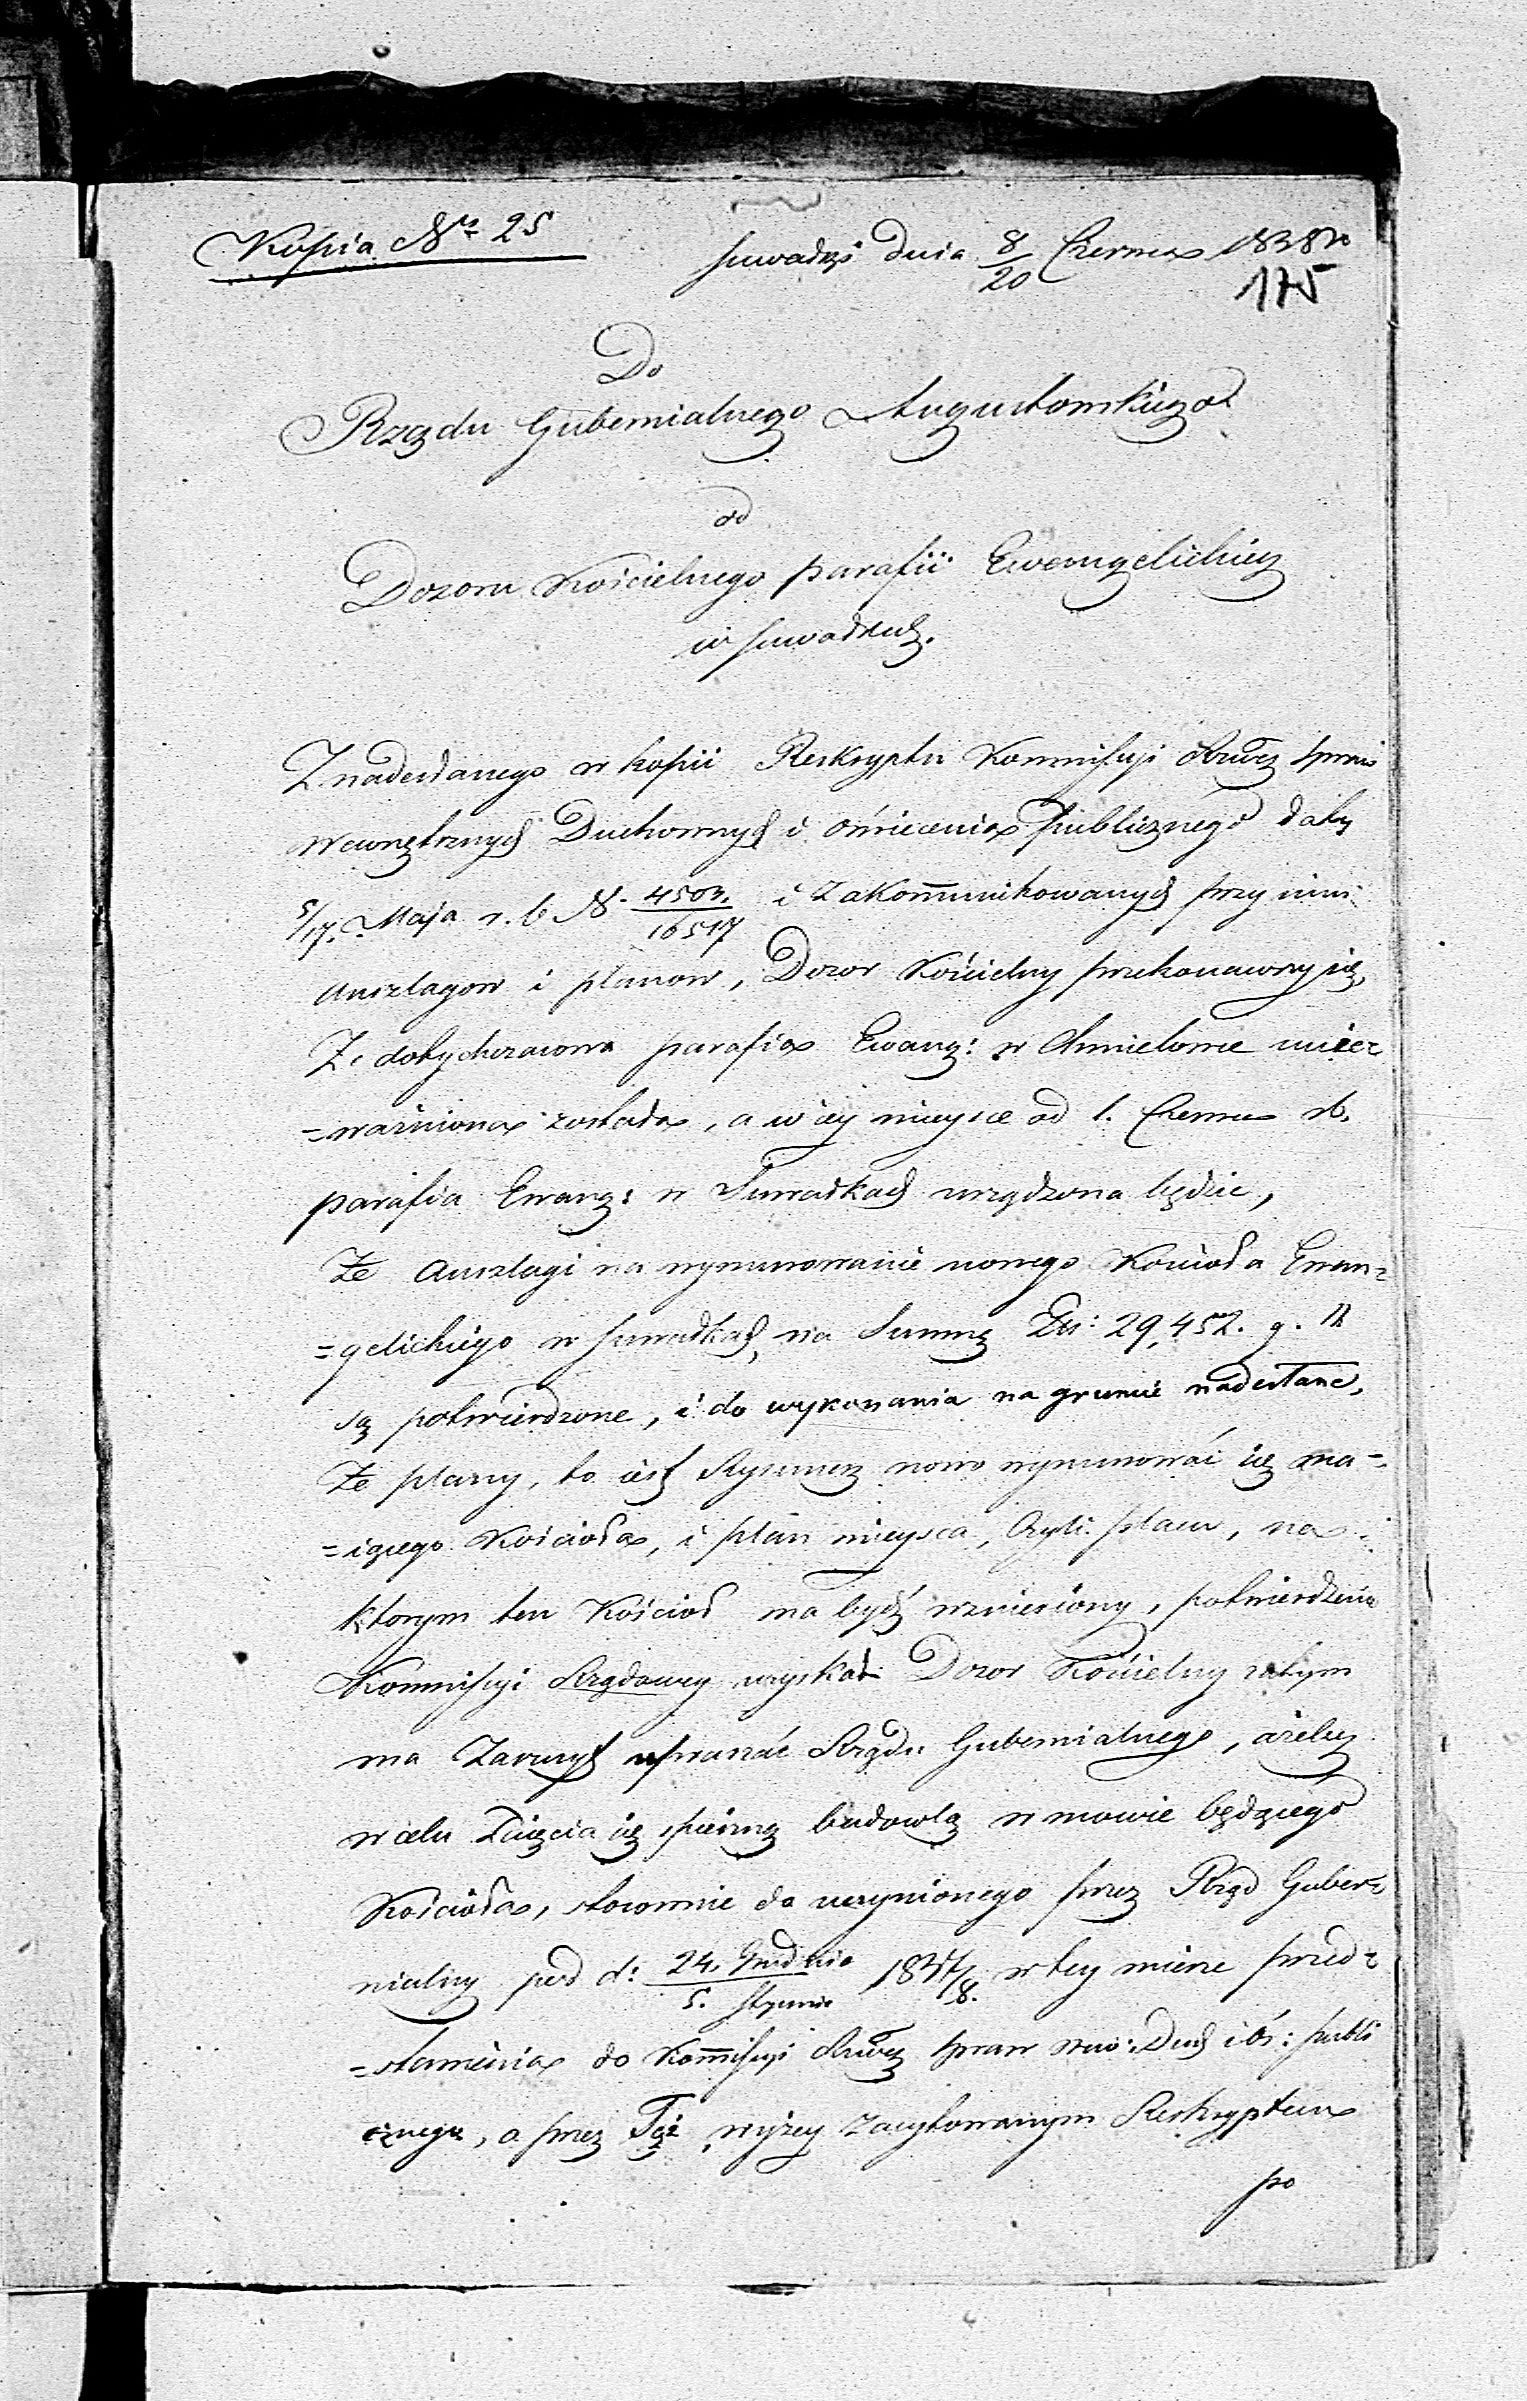 Kopia Nro 25
Suwałki dnia 8/20 Czerwca 1838 r
175
Do
Rządu Gubernialnego Augustowskiego
od
Dozoru Kościelnego parafii Ewangelickiey
w Suwałkach.
Z nadesłanego w kopii Reskryptu Kommissyi Rzwey Spraw
Wewnętrznych Duchownych i oświecenia publicznego daty
5/17. Maja r. b. N. 4503./16517 i zakommunikowanych przy nim
anszlagow i planow, Dozor Kościelny przekonawszy się,
Że dotychczasowa parafia Ewang: w Chmielowie unie=
=ważniona została, a w iey mieysce od 1. Czerwca rb.
parafia Ewang: w Suwałkach urządzona będzie,
Że anszlagi na wymurowanie nowego Kościoła Ewan=
=gelickiego w Suwałkach, na Summę Złł: 29,452. g. 11
są potwierdzone, i do wykonania na gruncie nadesłane,
Że plany, to iest Rysunek nowo wymurować się ma=
=iącego Kościoła, i plan mieysca, czyli placu, na
ktorym ten Kościoł ma bydź wzniesiony, potwierdzenie
Kommissyi Rządowey uzyskał Dozor Kościelny zatym
ma zaszczyt upraszać Rządu Gubernialnego, ażeby
w celu zaięcia się spieszną budowlą w mowie będącego
Kościoła, stosownie do uczynionego przez Rząd Guber=
nialny pod d: 24. Grudnia/5. Stycznia 1837/8. w tey mierze przed=
=stawienia do Kommissyi Rzwey Spraw wew: Duch i Oś: publi
cznego, a przez Tęż wyżey zacytowanym Reskryptem
po